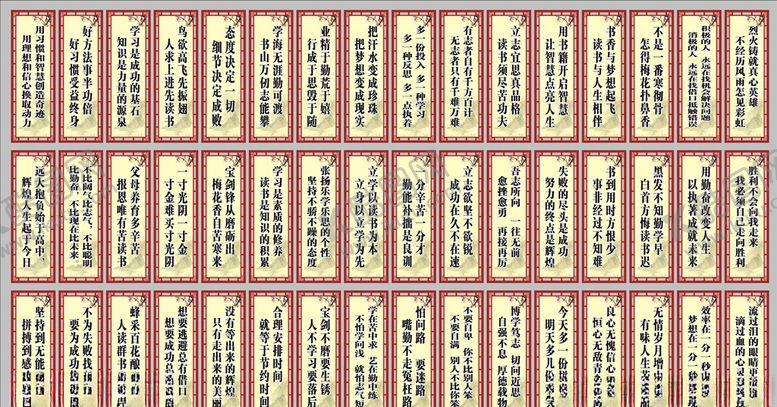 烈火铸就真心英雄
不经历风雨怎见彩虹
积极的人 永远在找机会解决问题
消极的人 永远在找借口抵触错误
不是一番寒彻骨
怎得梅花扑鼻香
书香与梦想起飞
读书与人生相伴
用书籍开启智慧
让智慧点亮人生
立志宜思真品格
读书须尽苦功夫
有志者自有千方百计
无志者只有千难万难
多一份投入 多一种学习
多一种反思 多一点执着
把汗水变成珍珠
把梦想变成现实
业精于勤荒于嬉
行成于思毁于随
学海无涯勤可渡
书山万仞志能攀
态度决定一切
细节决定成败
鸟欲高飞先振翅
人求上进先读书
学习是成功的基石
知识是力量的源泉
好方法事半功倍
好习惯受益终身
用习惯和智慧创造奇迹
用理想和信心换取动力
胜利不会向我走来
我必须自己走向胜利
用勤奋改变人生
以执著成就未来
黑发不知勤学早
白首方悔读书迟
书到用时方恨少
事非经过不知难
失败的尽头是成功
努力的终点是辉煌
吾志所向 一往无前
愈挫愈勇 再接再厉
立志欲坚不欲锐
成功在久不在速
一分辛苦一分才
勤能补拙是良训
立学以读书为本
立身以立学为先
张扬乐思的个性
坚持不骄不躁的态度
学习是素质的修养
读书是知识的积累
宝剑锋从磨砺出
梅花香自苦寒来
一寸光阴一寸金
寸金难买寸光阴
父母养育多辛苦
报恩唯有苦读书
不比阔气比志气 不比聪明
比勤奋 不比现在比未来
远大抱负始于高中
辉煌人生起于今日
流过泪的眼睛
滴过血的心灵
效率在一分一秒
梦想在一分一秒
无情岁月增
有味人生
良心无愧信心
恒心无敌
今天多一份
明天多几
博学笃志 切问近思
自强不息 厚德载物
不要自卑 你不比别人笨
不要自满 别人不比你笨
怕问路 要迷路
嘴勤不走冤枉路
学在苦中求 艺在勤中练
不怕学问浅 就怕志气短
宝剑不磨要生锈
人不学习要落后
合理安排时间
就等于节约时间
没有等出来的辉煌
只有走出来的美丽
想要逃避总有借口
想要成功
蜂采百花酿
人读群书
不为失败找
要为成功
坚持到无能
拼搏到感